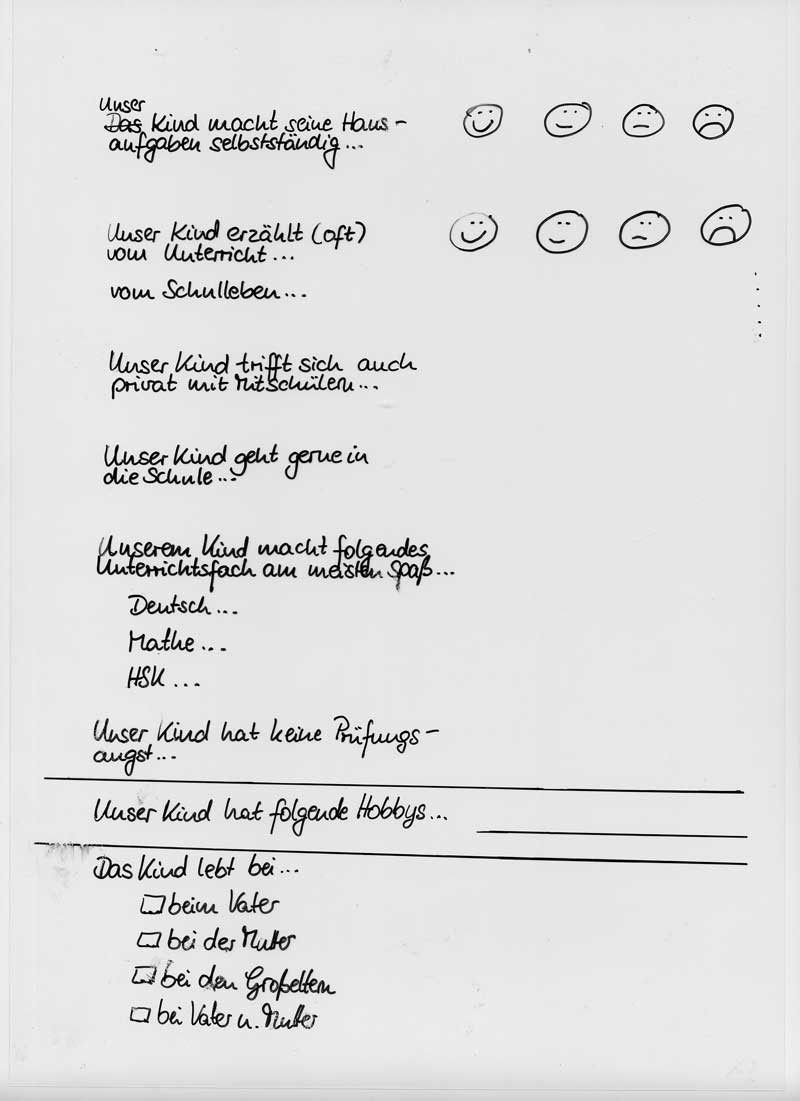 Unser
Das Kind macht seine Haus-
aufgaben selbstständig...
Unser Kind erzählt (oft)
vom Unterricht...
vom Schulleben...
Unser Kind trifft sich auch
privat mit Mitschülern...
Unser Kind geht gerne in
die Schule...
Unserem Kind macht folgendes
Unterrichtsfach am meisten Spaß...
Deutsch...
Mathe...
HSK...
Unser Kind hat keine Prüfungs-
angst...
Unser Kind hat folgende Hobbys...
Das Kind lebt bei...
beim Vater
bei der Mutter
bei den Großeltern
bei Vater u. Mutter